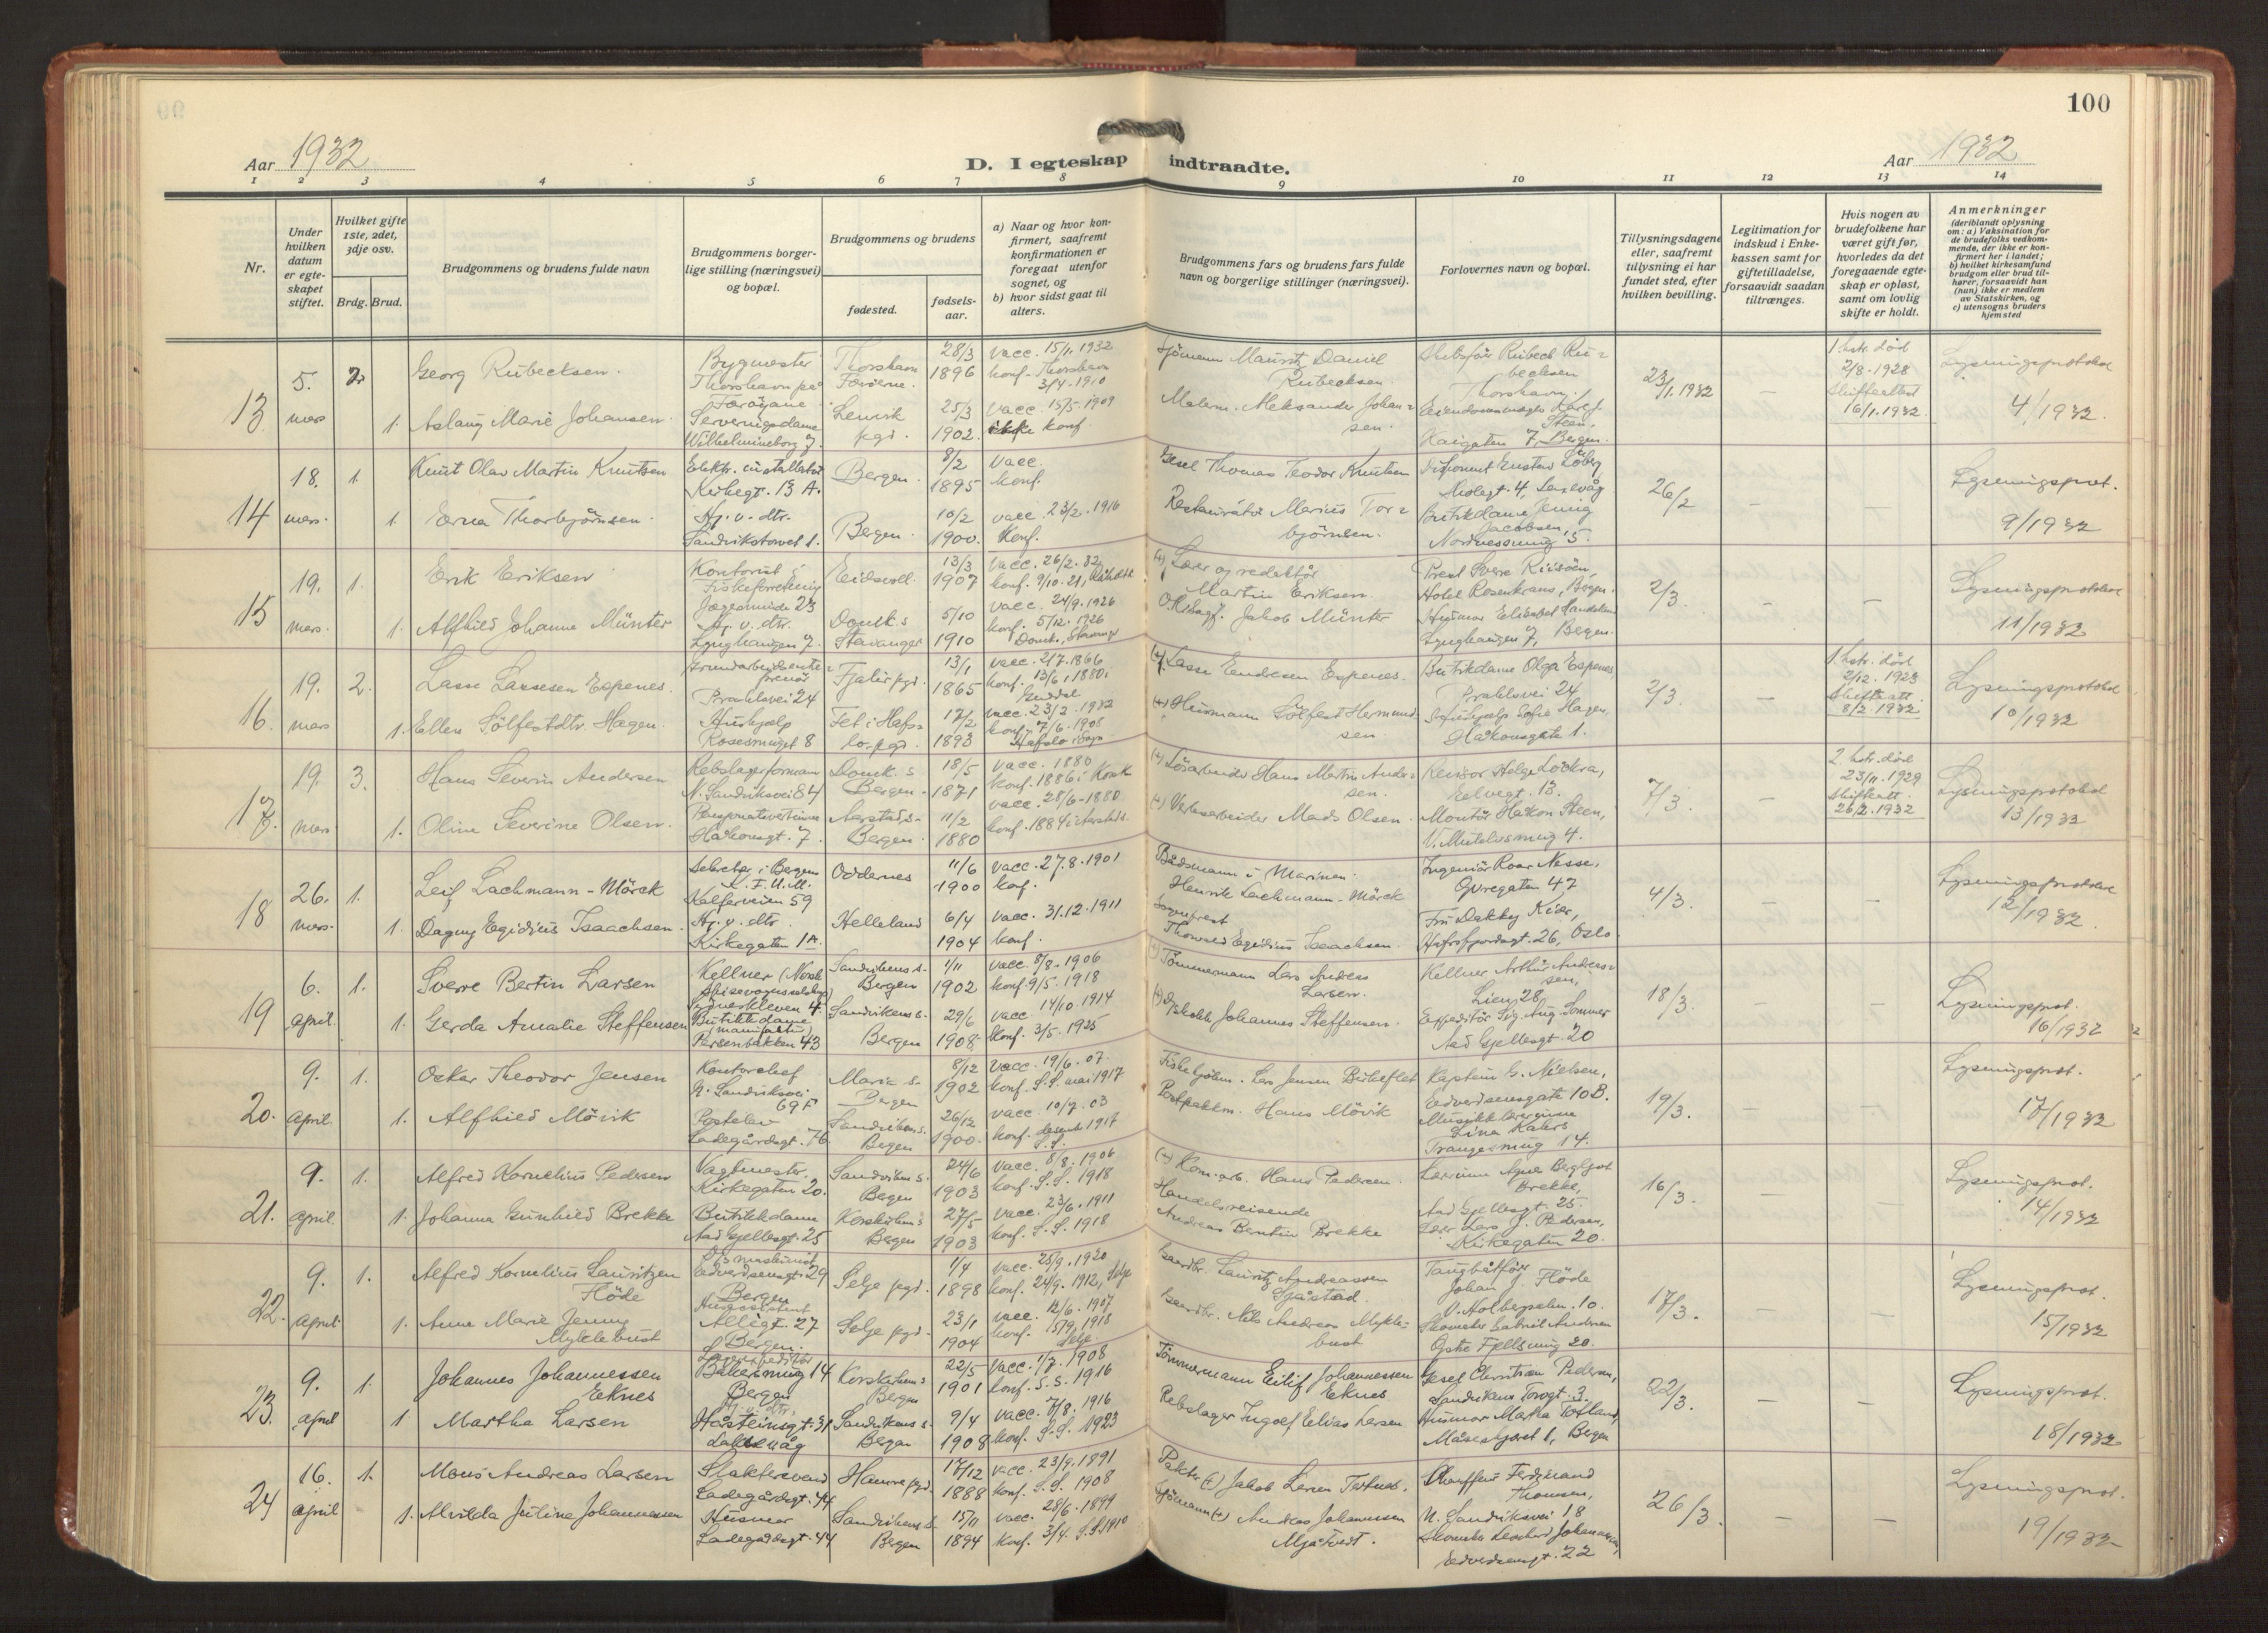 100
Aar 1932
D. I egteskap indtraadte.
Aar 1932
1 2 3 4 5 6 7 8 9 10 11 12 13 14
Nr.
Under hvilken datum er egteskapet stiftet.
Hvilket gifte 1ste, 2det, 3dje osv.
Brdg. Brud.
Brudgommens og brudens fulde navn
Brudgommens borgerlige stilling (næringsvei) og bopæl.
Brudgommens og brudens
fødested.
fødsels-aar.
a) Naar og hvor konfirmert, saafremt konfirmationen er foregaat utenfor sognet, og
b) hvor sidst gaat til alters.
Brudgommens fars og brudens fars fulde navn og borgerlige stillinger (næringsvei).
Forlovernes navn og bopæl.
Tillysningsdagene eller, saafremt tillysning ei har fundet sted, efter hvilken bevilling.
Legitimation for indskud i Enkekassen samt for giftetilladelse, forsaavidt saadan tiltrænges.
Hvis nogen av brudefolkene har været gift før, hvorledes da det foregaaende egteskap er opløst, samt om lovlig skifte er holdt.
Anmerkninger
(deriblandt oplysning om: a) Vaksination for de brudefolks vedkommende, der ikke er konfirmert her i landet; b) hvilket kirkesamfund brudgom eller brud tilhører, forsaavidt han (hun) ikke er medlem av Statskirken, og c) utensogns bruders hjemsted
13 5. mars 2. Georg Rubecksen. Bygmester Thorshavn på Færøyane Thorshavn Færøerne. 28/3 1896 vacc. 15/1. 1932 konf. Thorshavn 3/4-1910 Sjömann Mauritz Daniel Rubecksen. Skibsfører Rubeck Rubecksen Thorshavn. 23/1.1932 – 1. hstr. död 2/8-1928 Skifteattest 16/1.1932. Lysningsprotokol 4/1932.
1. Aslaug Marie Johansen. Serveringsdame Wilhelmineborg 7. Lenvik pgd. 25/3 1902. vacc. 15/5.1909 ikke konf. Malerm. Aleksander Johansen. Steen. Kaigaten 7, Bergen.
14 18. mars. 1. Knut Olav Martin Knutsen Elektr. installatör Kirkegt. 13 A. Bergen. 8/2 1895 vacc. konf. Gesel Thomas Teodor Knutsen Disponent Gustav Löberg, Laksevåg 26/2 – – Lysningsprot. 9/1932
1. Erna Thorbjörnsen. Hj. v. dtr. Sandvikstorvet 1. Bergen. 10/2 1900. vacc. 23/2.1916 konf. Restauratör Marius Torbjörnsen. Butikdame Jenny Jacobsen, Nordnessmug 5.
15 19. mars. 1. Erik Eriksen Kontorist i Fiskeforretning 23 Eidsvoll. 13/3 1907 vacc. 26/2.32 konf. 9/10.21, (+) Lærer og redaktör Martin Eriksen. Prest Sverre Riisöen, Hotel Rosenkrans, Bergen. 2/3. – – Lysningsprotokol 11/1932
1. Alfhild Johanne Münter Hj. v. dtr. Lynghaugen 7. Domk.s Stavanger 5/10 1910 vacc. 24/9.1926 konf. 5/12.1926 Domk., Stavanger Jakob Münter Husmor Elisabet Lynghaugen 7, Bergen.
16. 19. mars 2. Lasse Lassesen Espenes. Grundarbeidsentreprenör 24 Fjaler pgd. 13/1 1865 vacc. 2/7.1866 konf. 13/6.1880 i Guddal (+) Lasse Endresen Espenes. Butikdame Olga Espenes, 24. 2/3. – 1. hstr. död 2/12.1923 Skifteatt. 8/2.1932 Lysningsprotokol 10/1932
1. Ellen Sölfestdtr. Hagen. Hushjelp Rosesmuget 8 Fet i Hafslo pgd. 17/2 1893 vacc. 23/2.1932 konf. 7/6.1908 Hafslo i Sogn (+) Husmann Sölfest Hermundsen. Hushjelp Sofie Hagen, Håkonsgate 1.
17. 19. mars 3. Hans Severin Andersen Rebslagerformann N. Sandviksvei 84 Domk.s Bergen. 18/5 1871 vacc. 1880 konf. 1886 i Korsk. (+) Lösarbeider Hans Martin Andersen. Revisor Helge Lockra, 13. 7/3. – 2. hstr. död 23/11.1929 Skifteatt. 26/2.1932 Lysningsprotokol 13/1932
1. Oline Severine Olsen. Pensjonatvertinne Håkonsgt. 7 Aarstad s. Bergen. 11/2 1880 vacc. 28/6-1880 konf. 1884 i Aarstad s. (+) Verksarbeider Mads Olsen. Montör Håkon Steen, 4.
18 26. mars. 1. Leif Lachmann-Mörck Sekretær i Bergens K.F.U.M. Kalfarveien 59 Oddernes 11/6 1900 vacc. 27.8.1901 konf. Bådsmann i Marinen Henrik Lachmann-Mörck Ingeniör Roar Nesse, Övregaten 47 4/3. – – Lysningsprotokol 12/1932.
1. Dagny Egidius Isaachsen. Hj. v. dtr. Kirkegaten 1A. Helleland 6/4 1904 vacc. 31.12.1911 konf. Sogneprest Thorvald Egidius Isaachsen. Fru Dakky Kiær, Hafrsfjordsgt. 26, Oslo.
19 6. april. 1. Sverre Bertin Larsen Kellner (Norsk Spisevognsselskap) 4. Sandvikens s. Bergen 1/11 1902 vacc. 8/8.1906 konf. 9/5.1918 (+) Tömmermann Lars Andreas Larsen. Kellner Arthur Andreassen, Lien 28 18/3. – – Lysningsprot. 16/1932
1. Gerda Amalie Steffensen Butikkdame (manufaktur) Persenbakken 43 Sandvikens s. Bergen 29/6 1908. vacc. 14/10.1914 konf. 3/5.1925 (+) Johannes Steffensen. Expeditör Sig. Aug. Sommer Aad Gjellesgt. 20
20. 9. april 1. Oskar Theodor Jensen Kontorchef N. Sandviksvei 69 F Maria s. Bergen 8/12 1902 vacc. 19/6.07. konf. S.S. mai 1917 Fiskehjölm. Lars Jensen Birkeflet Kaptein G. Nielsen, Edvardsensgate 10 B. 19/3. – – Lysningsprot. 17/1932
1. Alfhild Mövik Postelev Ladegårdsgt. 76 Sandvikens s. Bergen 26/12 1900. vacc. 10/7.03 konf. desemb. 1917 S.S. Postpakkm. Hans Mövik Musikklærerinne Dina Kahrs Trangesmug 14.
21. 9. april. 1. Alfred Kornelius Pedersen Vagtmester. Kirkegaten 20. Sandvikens s. Bergen 24/6 1903 vacc. 8/8.1906 konf. S.S. 1918 (+) Kom.arb. Hans Pedersen. Lærerinne Agne Bergljot Brekke, Aad Gjellesgt. 25. 16/3. – – Lysningsprot. 14/1932
1. Johanna Gunhild Brekke Butikkdame Aad Gjellesgt. 25 Korskirkens s. Bergen 27/5 1903 vacc. 23/6.1911 konf. S.S. 1918 Handelsreisende Andreas Bentin Brekke Lærer Lars J. Pedersen, Kirkegaten 20.
22. 9. april 1. Alfred Kornelius Lauritzen Flöde Edvardsensgt. 29 Bergen Selje pgd. 1/4 1898 vacc. 28/9.1920 konf. 24/9.1912, Selje Gaardbr. Lauritz Andreassen Sjåstad. Taugbåtförer Johan J. Flöde V. Holbergsalm. 10. 17/3. – Lysningsprot. 15/1932
1. Anne Marie Jenny Myklebust Husassistent Allégt. 27 Bergen. Selje pgd. 23/1 1904 vacc. 12/6.1907 konf. 15/9.1918 Selje. Gaardbr. Nils Andreas Myklebust Skomaker Gabriel Andersen Östre Fjellsmug 20.
23. 9. april 1. Johannes Johannessen Eeknes Lagerexpeditör Bakersmug 14 Bergen Korskirkens s. Bergen 22/5 1901 vacc. 1/7.1908 konf. S.S. 1916 Tömmermann Eilif Johannessen Eeknes Gesel Christian Pedersen, Sandvikens Torvgt. 3. 22/3. – – Lysningsprot. 18/1932
1 Martha Larsen Hj. v. dtr. Håsteinsgt. 31 Laksevåg Sandvikens s. Bergen 9/4 1908 vacc. 7/8.1916 konf. S.S. 1923 Rebslager Ingolf Elvias Larsen Husmor Marta Totland, Måseskjæret 1, Bergen
24 16. april 1. Mons Andreas Larsen Slaktersvend Ladegårdsgt. 44 Hamre pgd. 17/12 1888 vacc. 23/9.1891 konf. S.S. 1908 Pakker (+) Jakob Larsen Tertnes. Chauffeur Ferdinand Thomsen, N. Sandviksvei 18 26/3. – – Lysningsprot. 19/1932
1. Alvilda Juline Johannessen Husmor Ladegårdsgt. 44 Sandvikens s. Bergen 15/11 1894 vacc. 28/6.1899 konf. 3/4. S.S. 1910 Sjömann (+) Andreas Johannessen Mjåtvedt. Skomaker Leonhard Johannessen, Edvardsensgt. 22